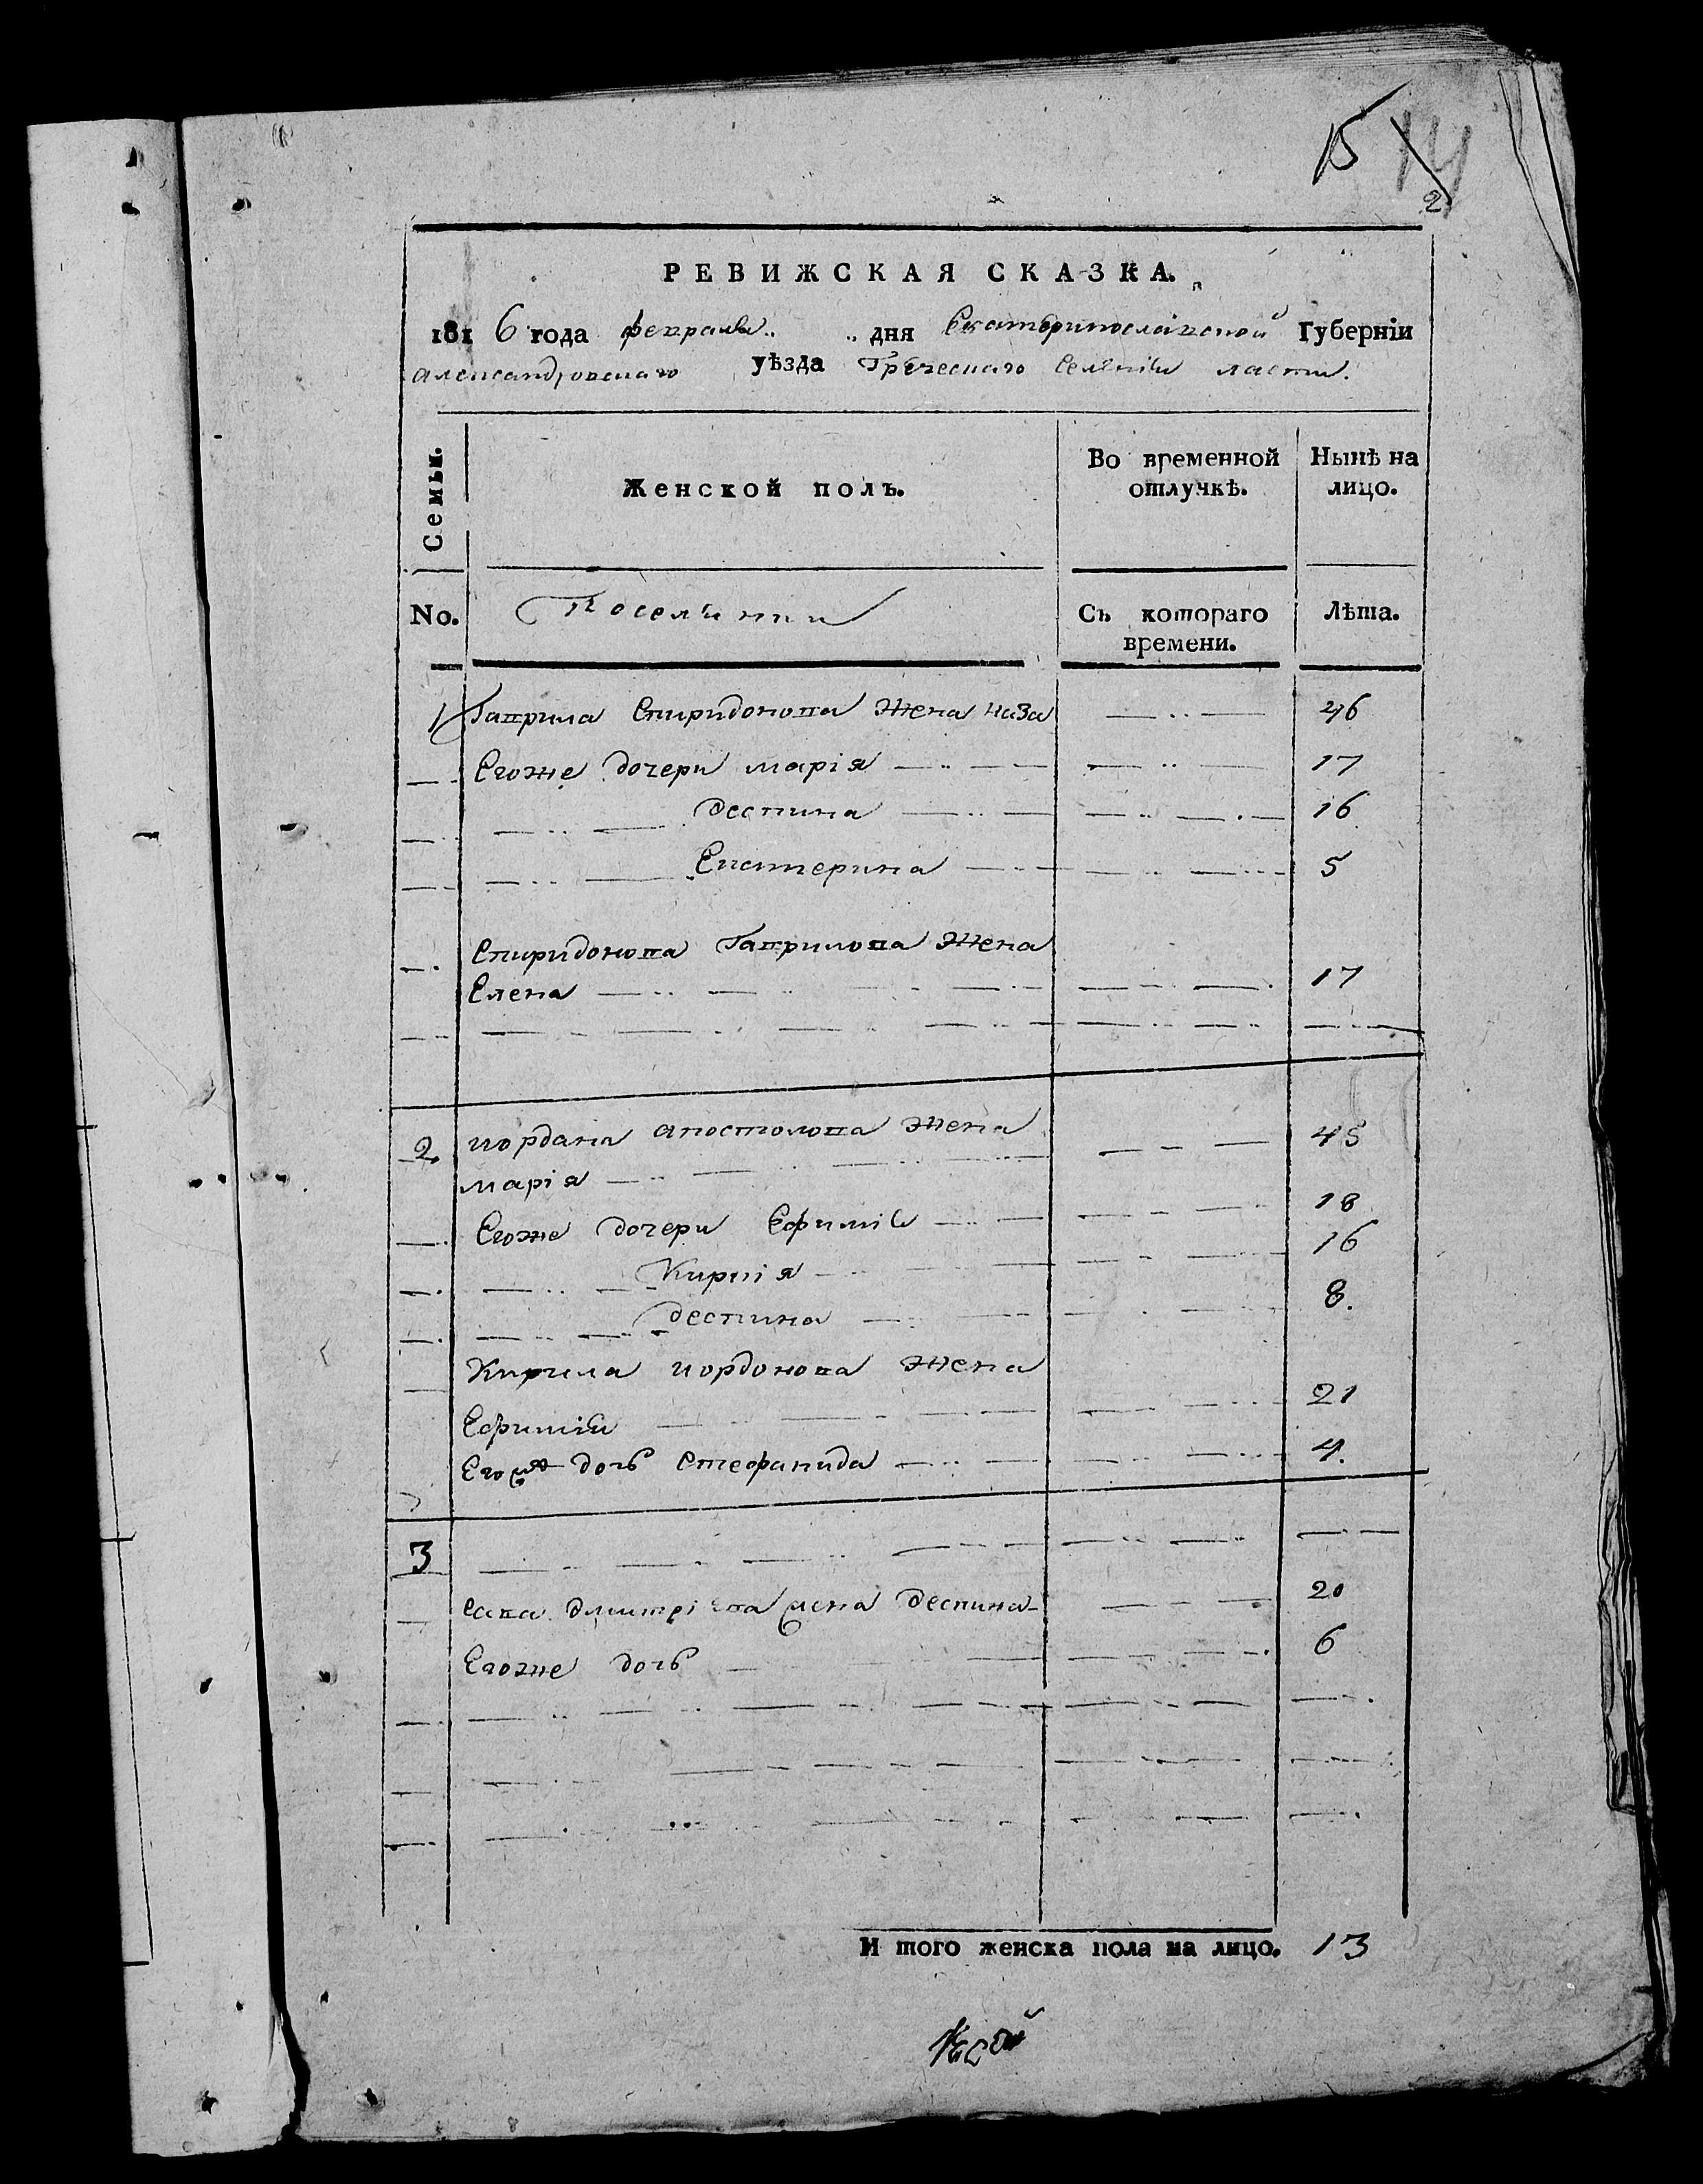 15 14
2
РЕВИЖСКАЯ СКАЗКА.
1816 года февраля дня Екатеринославской Губерніи
александровскаго уѣзда Греческаго Селенія ласпи.
Семьи. Женской полъ. Во временной отлучкѣ. Нынѣ на лицо.
No. Поселянки Съ котораго времени. Лѣта.
1 Гаврила Спиридонова Жена наза 46
Егоже дочери марія 17
деспина 16
Екатерина 5
Спиридонова Гаврилова Жена
Елена 17
2. иордана апостолова Жена 45
марія
Егоже дочери Ефимія 18
Киркія 16
деспина 8.
Кирила иорданова Жена
Ефимія 21
Его дочь Стефанида 4.
3
сава дмитріева жена деспина 20
Егоже дочь 6
И того женска пола на лицо. 13